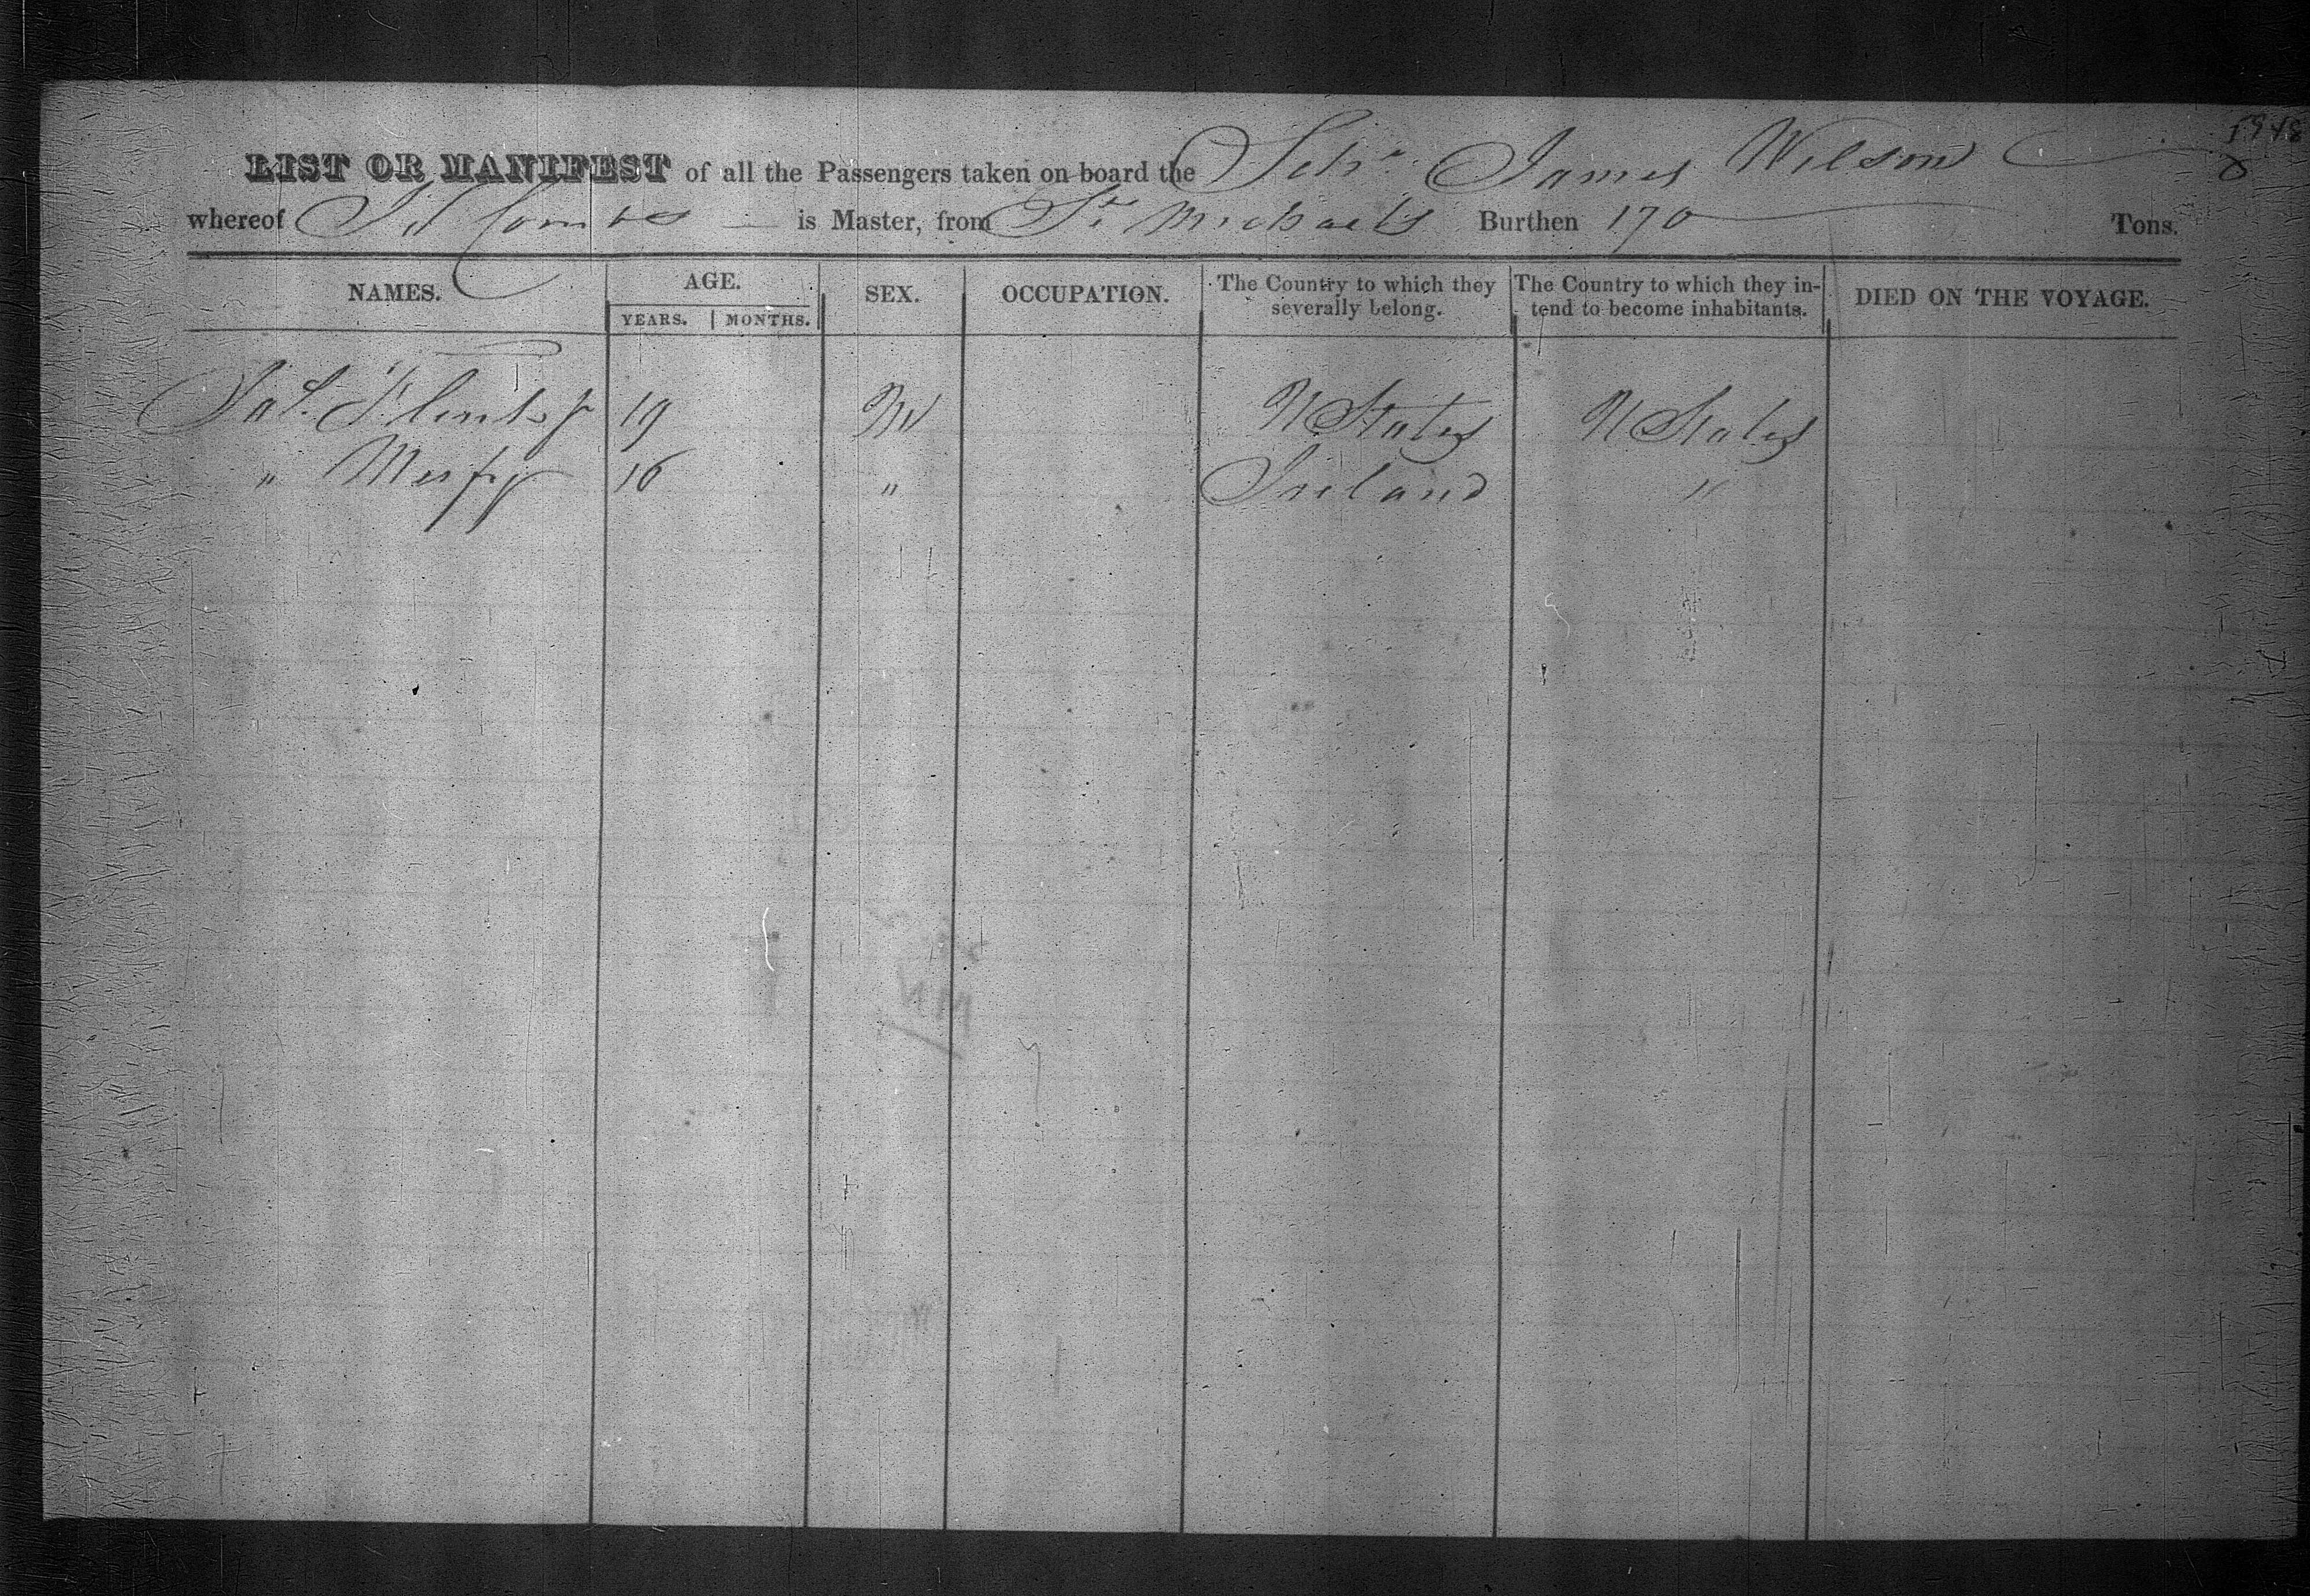 1948
LIST OR MANIFEST of all the Passengers taken on board the Schr James Wilson
whereof Combs is Master, from St Michaels Burthen 170 Tons.
NAMES. AGE. SEX. OCCUPATION. The Country to which they severally belong. The Country to which they intend to become inhabitants. DIED ON THE VOYAGE.
YEARS. MONTHS.
19 M U States U States
" Murfy 16 " Ireland "